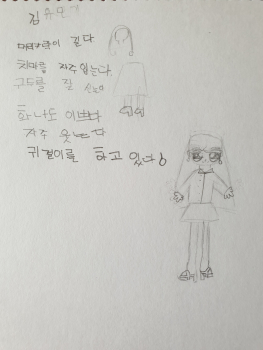 김유민
머리카락이 길다
치마를 자주 입는다.
구두를 잘 신는다
화나도 이쁘다
자주 웃는다
귀걸이를 하고 있다